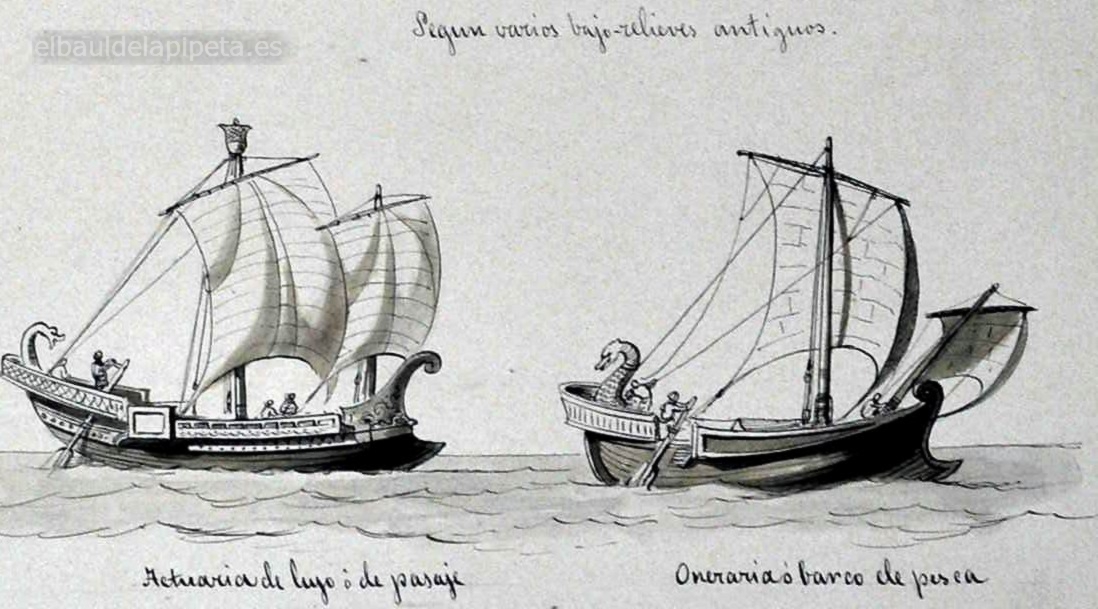 Segun varios bajo-relieves antiguos.
elbauldelapipeta.es
Actuaria de lujo ó de pasaje
Oneraria ó barco de pesca